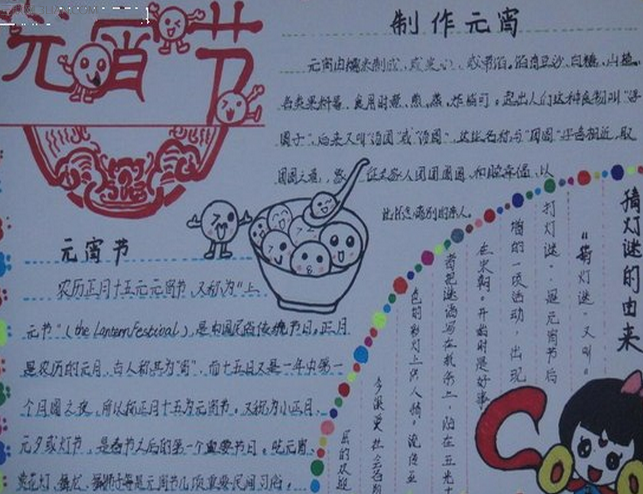 元宵节
制作元宵
元宵由糯米制成，或实心，或带馅。馅有豆沙、白糖、山楂、
各类果料等，食用时煮、煎、蒸、炸皆可。起初人们把这种食物叫“浮
圆子”，后来又叫“汤团”或“汤圆”，这些名称与“团圆”字音相近，取
团圆之意，象征全家人团团圆圆，和睦幸福，
元宵节
农历正月十五元元宵节，又称为“上
元节”（the Lantern Festival），是中国民俗传统节日。正月
是农历的元月，古人称其为“宵”，而十五日又是一年中第一
个月圆之夜，所以称正月十五为元宵节。又称为小正月、
元夕或灯节，是春节之后的第一个重要节日。吃元宵、
赏花灯、舞龙、舞狮子等是元宵节几项重要民间习俗。
猜灯谜的由来
“猜灯谜”又叫“
打灯谜”是元宵节后
增的一项活动，出现
在宋朝。开始时是好事
者把谜语写在纸条上，贴在五光十
色的彩灯上供人猜。